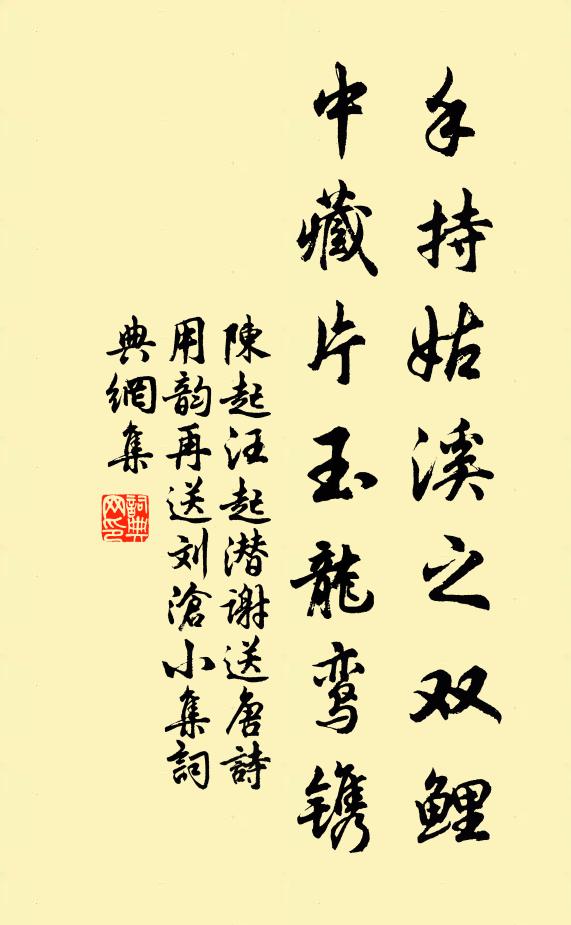 手持姑溪之双鲤
中藏片玉龍鸾镌
陳起汪起潜谢送唐詩
用韵再送刘滄小集詞
典網集
詞典网印